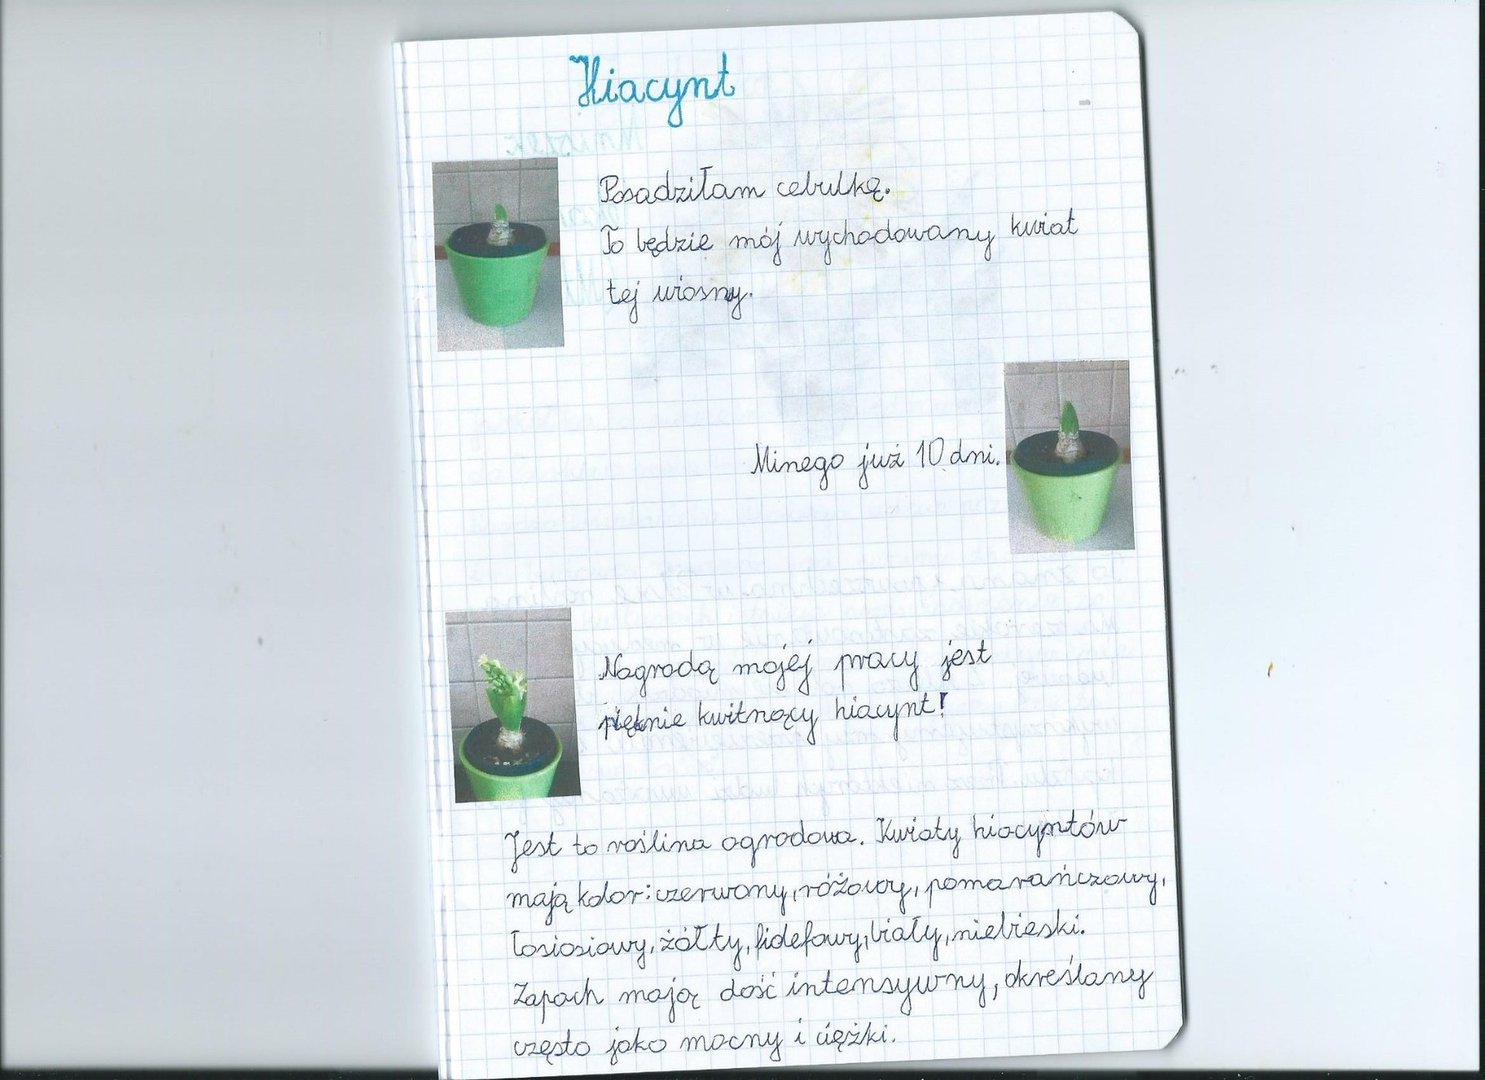 Hiacynt
Posadziłam cebulkę.
To będzie mój wychodowany kwiat
tej wiosny.
Minego już 10 dni.
Nagrodą mojej pracy jest
pięknie kwitnący hiacynt!
Jest to roślina ogrodowa. Kwiaty hiacyntów
mają kolor: czerwony, różowy, pomarańczowy,
łosiosiowy, żółty, fidefowy, biały, niebieski.
Zapach mają dość intensywny, określany
często jako mocny i ciężki.